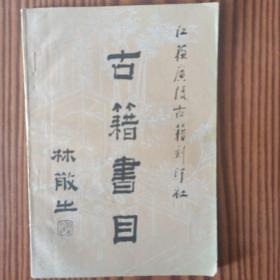 江苏廣陵古籍刻印社
古籍書目
林散之